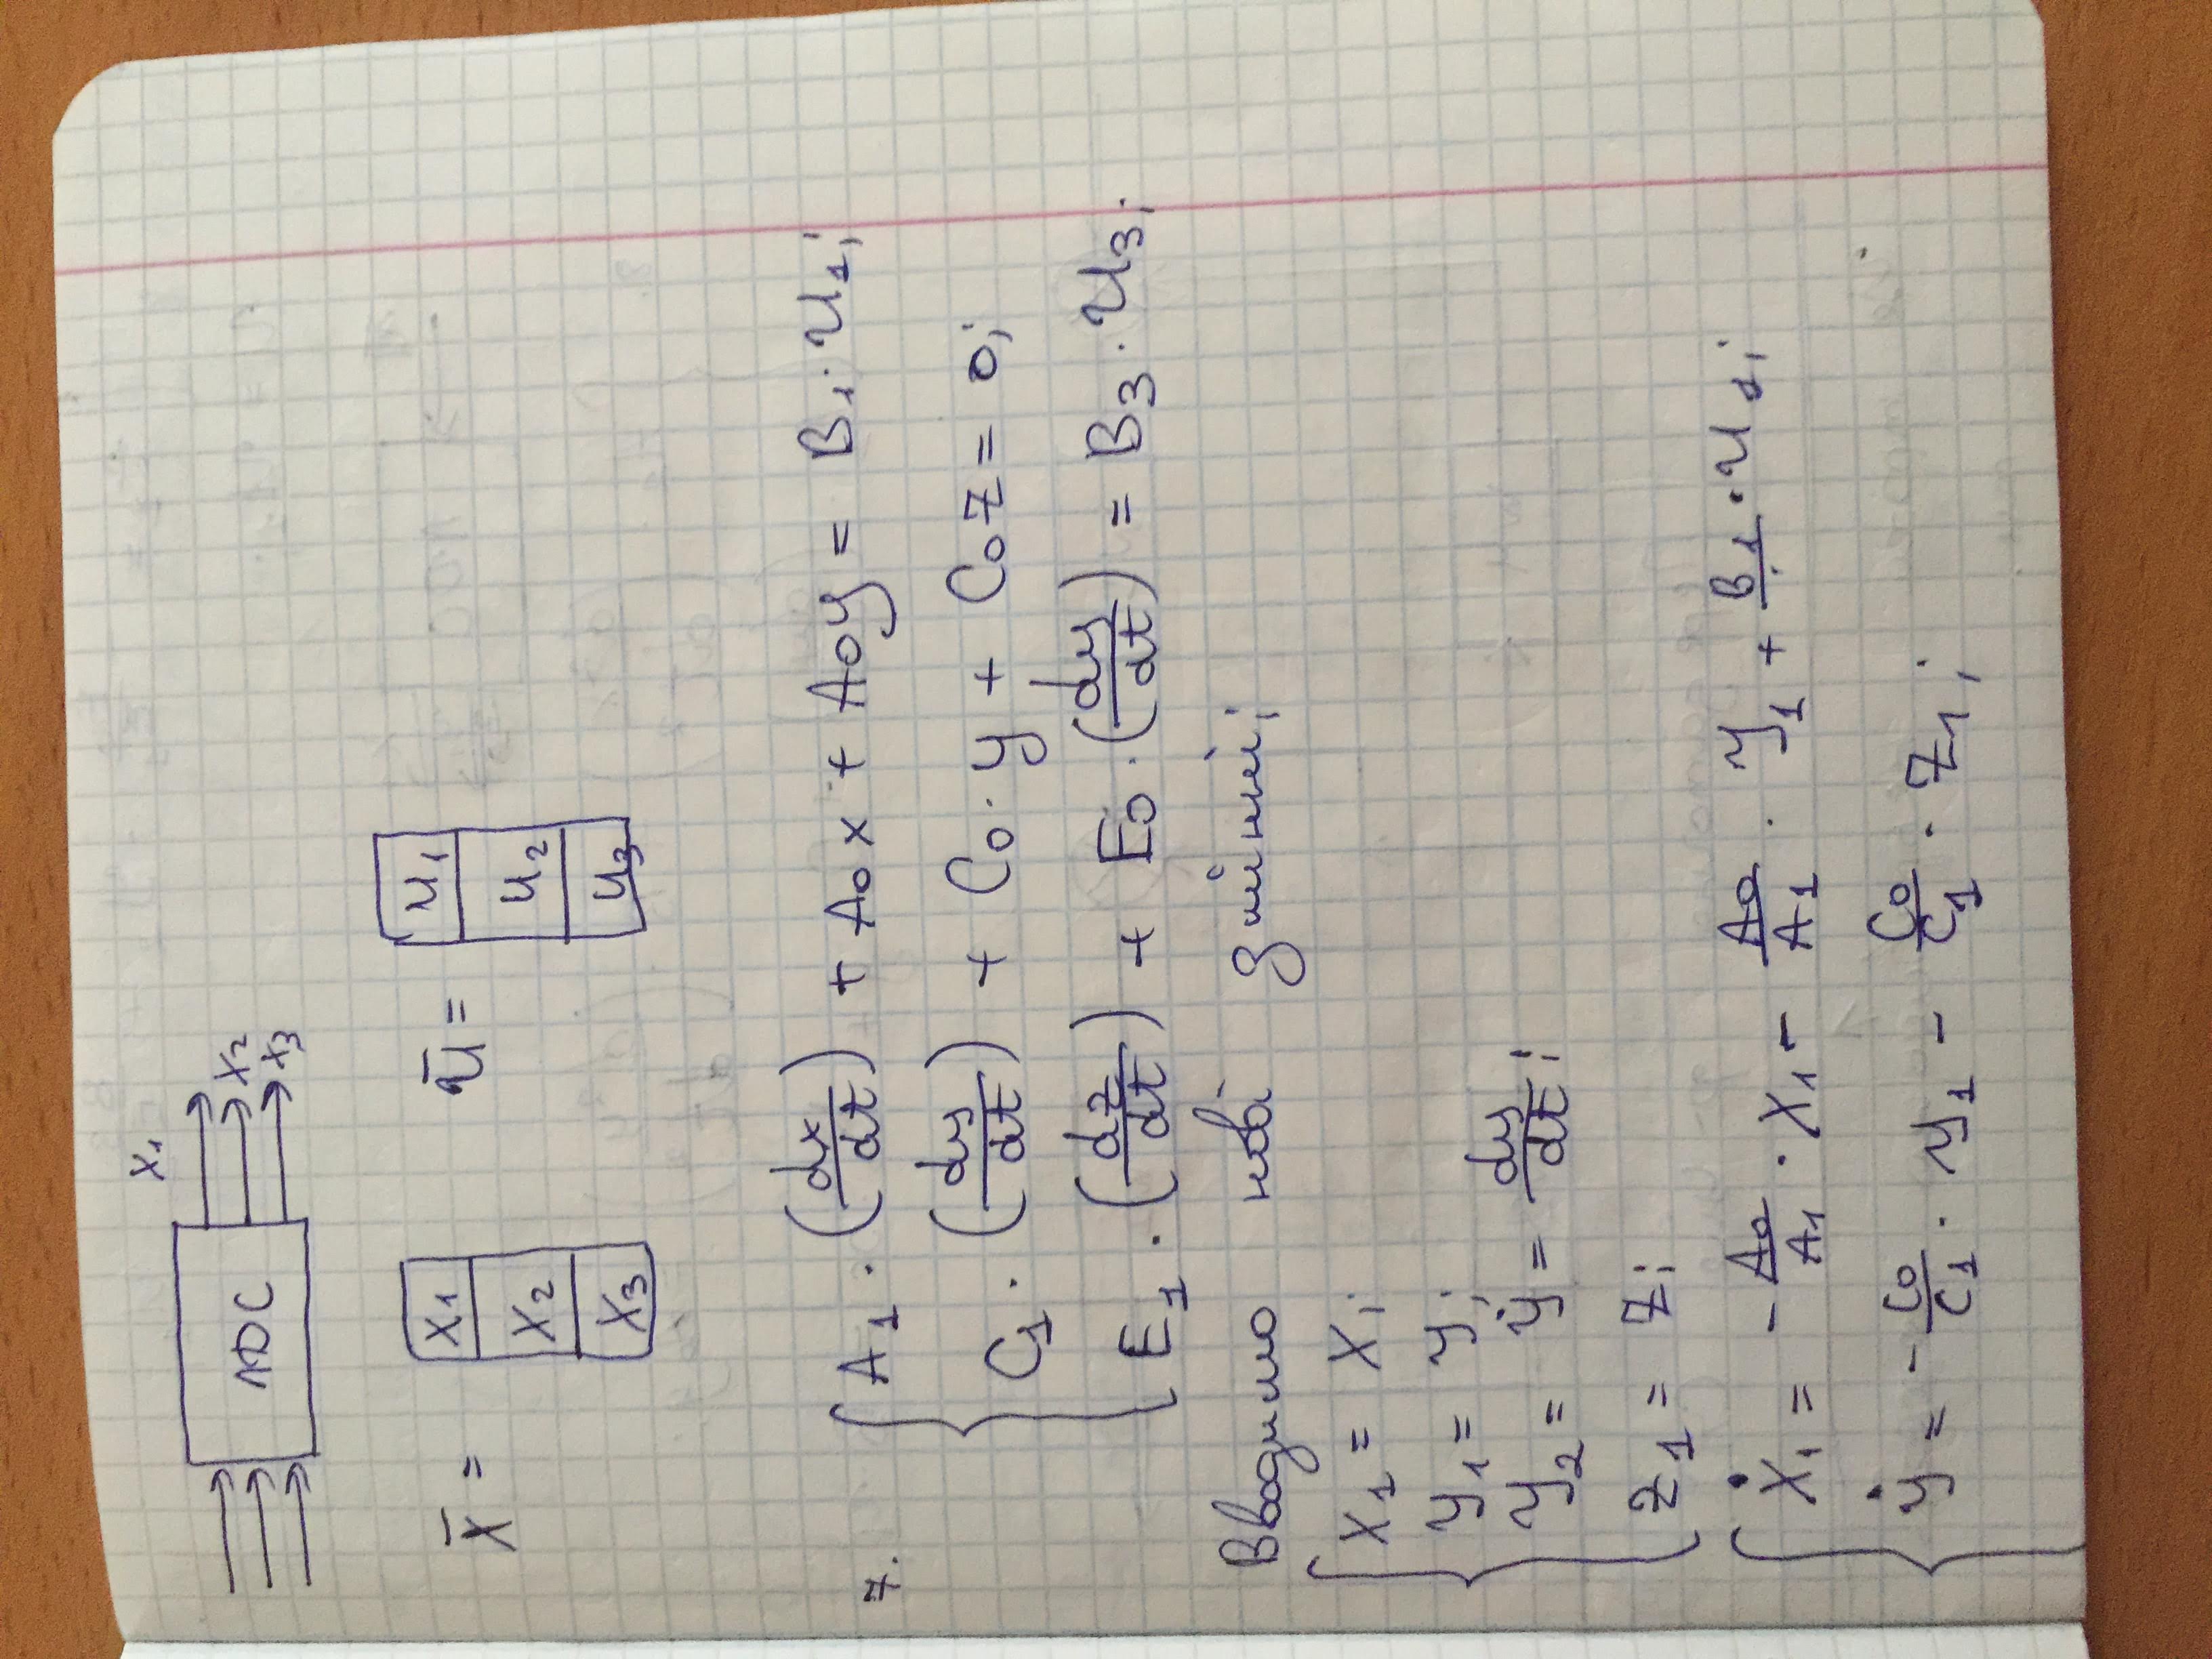 X1
ЛDC
X2
X3
X̄ =
X1
X2
X3
ū =
u1
u2
u3
7.
A1 · (dx/dt) + A0x + A0y = B1 · u1;
C1 · (dy/dt) + C0 · y + C0z = 0;
E1 · (dz/dt) + E0 · (dy/dt) = B3 · u3;
Вводимо нові змінні;
x1 = x;
y1 = y;
y2 = ẏ = dy/dt;
z1 = z;
ẋ1 = - A0/A1 · x1 - A0/A1 · y1 + B1/ · u1;
ẏ = - C0/C1 · y1 - C0/C1 · z1;